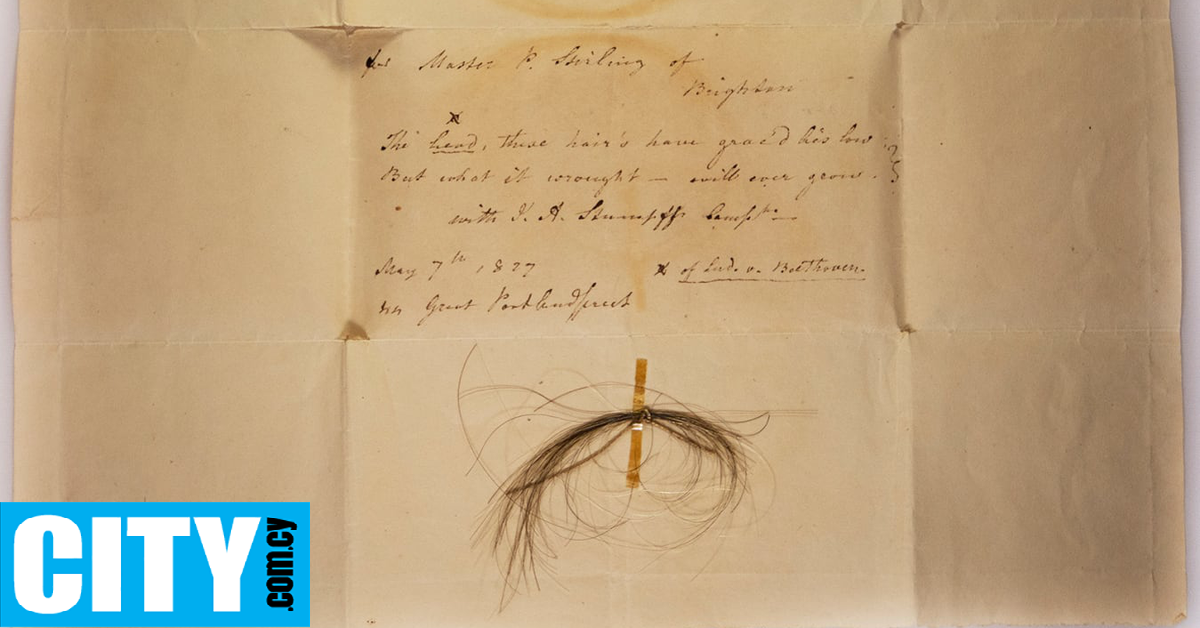 for Master P. Stirling of
Brighton
x
The head, these hair's have grac'd lies low
But what it wrought — will ever grow.
with I. A. Stumpff's Compts.
May 7th, 1827 x of Lud. v. Beethoven.
Great Portlandstreet
CITY.com.cy